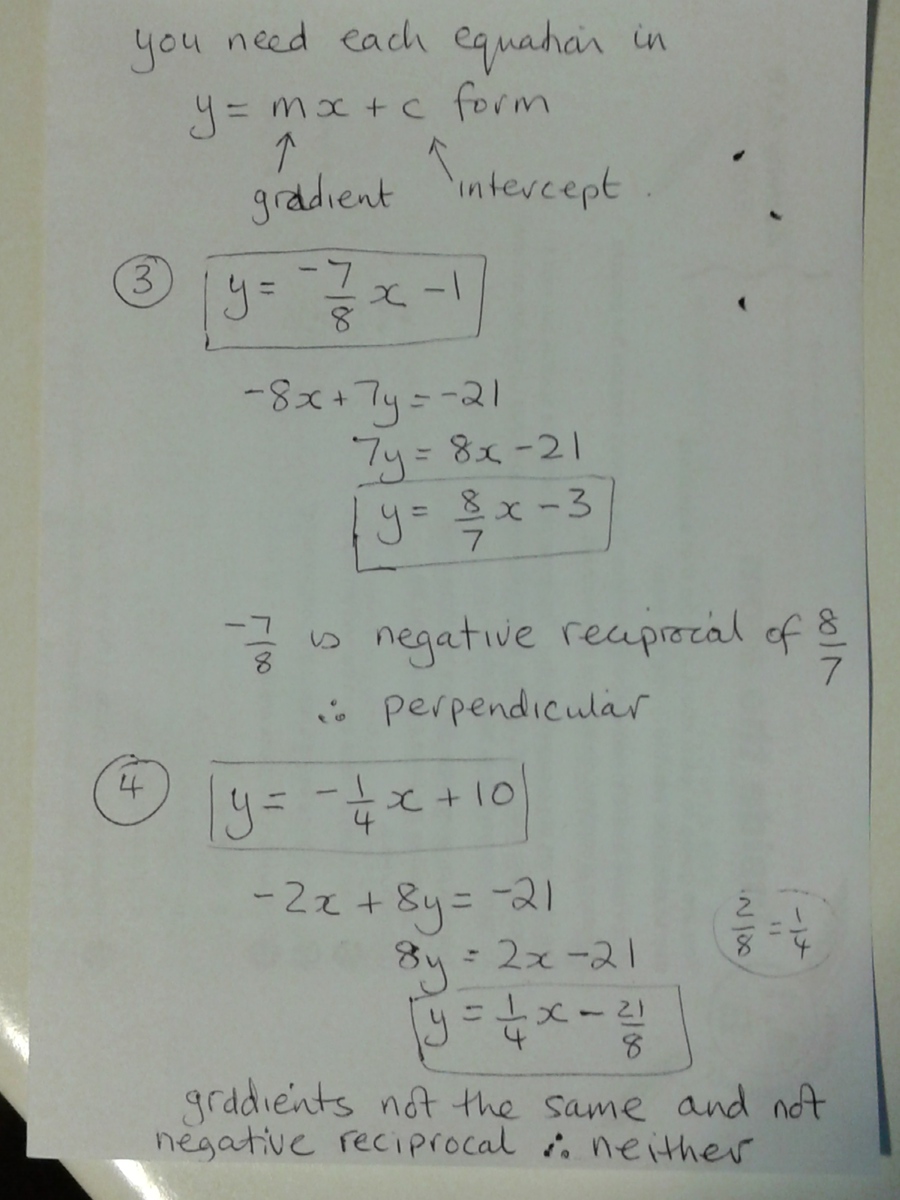 you need each equation in
y = mx + c form
↑ ↖
gradient intercept.
③ y = -7/8 x - 1
-8x + 7y = -21
7y = 8x - 21
y = 8/7 x - 3
-7/8 is negative reciprocal of 8/7
∴ perpendicular
④ y = -1/4 x + 10
-2x + 8y = -21
8y = 2x - 21 2/8 = 1/4
y = 1/4 x - 21/8
gradients not the same and not
negative reciprocal ∴ neither